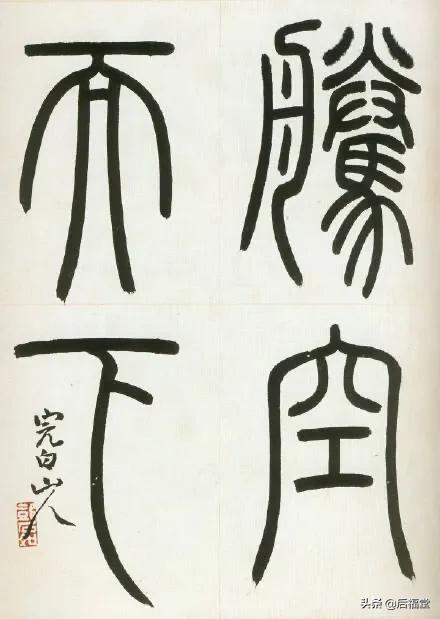 騰空
而下
完白山人
头条 @后福堂